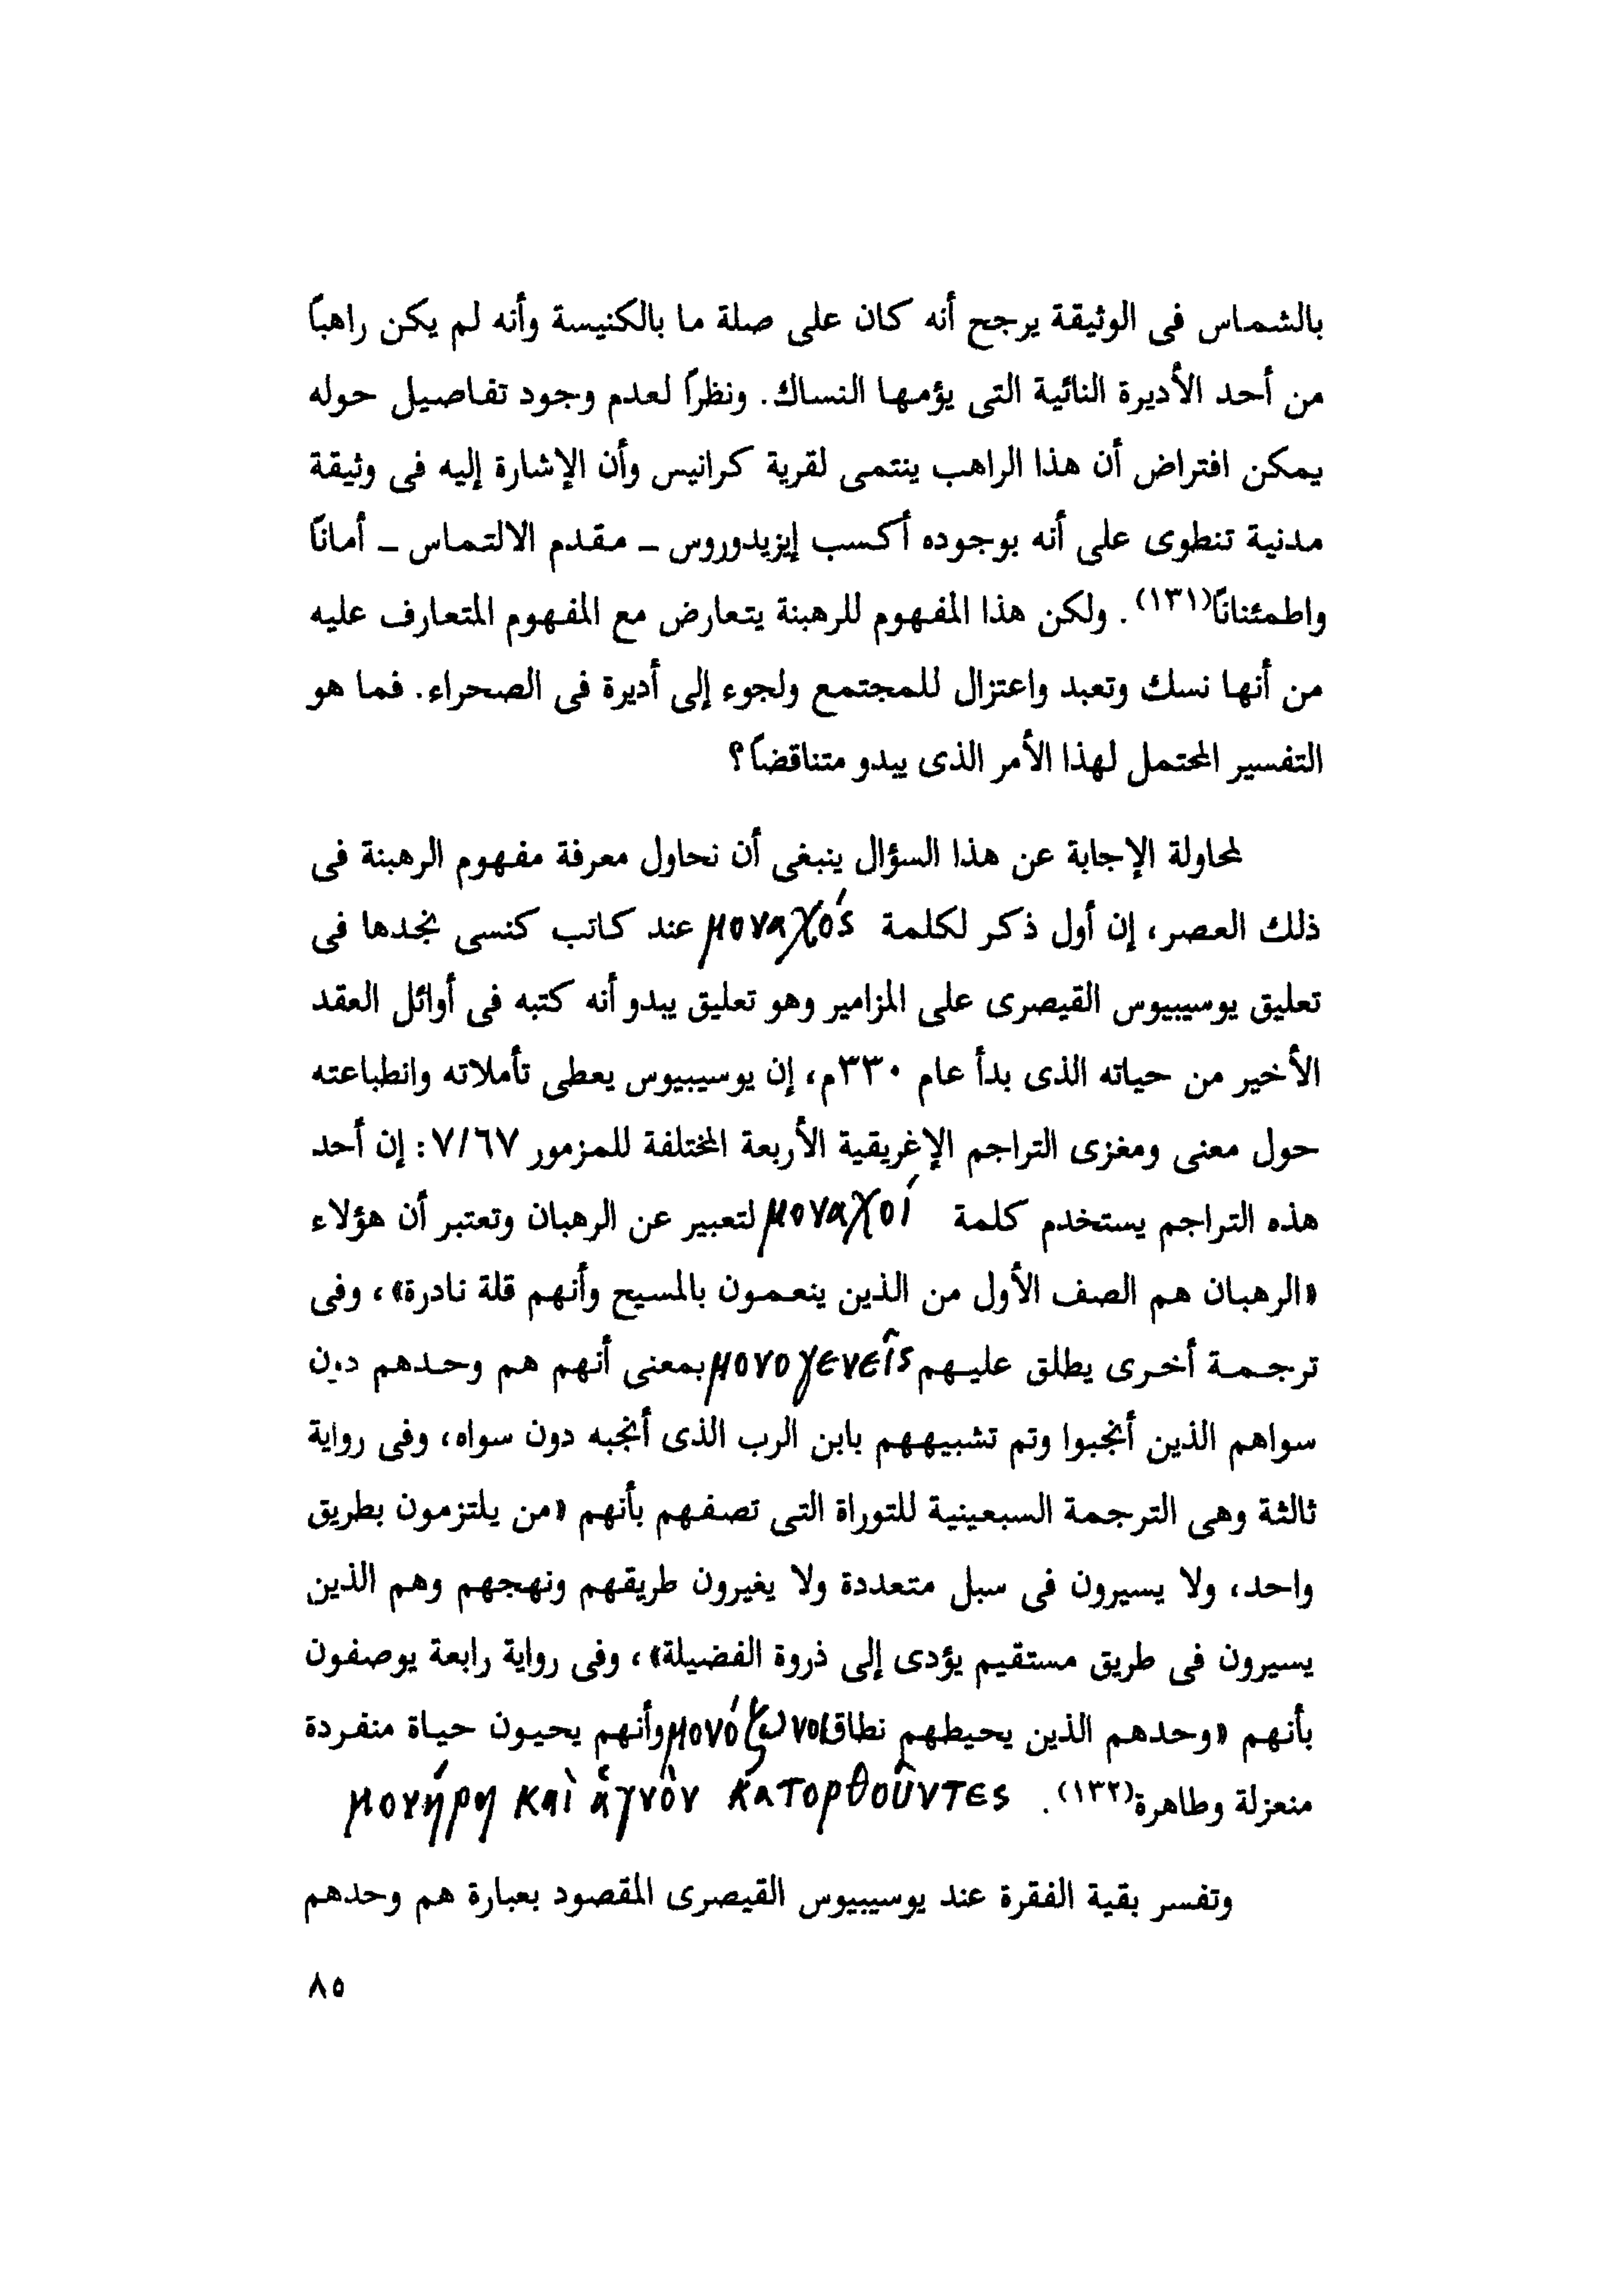 بالشماس فى الوثيقة يرجح أنه كان على صلة ما بالكنيسة وأنه لم يكن راهبًا
من أحد الأديرة النائية التى يؤمها النساك. ونظرًا لعدم وجود تفاصيل حوله
يمكن افتراض أن هذا الراهب ينتمى لقرية كرانيس وأن الإشارة إليه فى وثيقة
مدنية تنطوى على أنه بوجوده أكسب إيزيدوروس ــ مقدم الالتماس ــ أمانًا
واطمئنانًا(١٣١). ولكن هذا المفهوم للرهبنة يتعارض مع المفهوم المتعارف عليه
من أنها نسك وتعبد واعتزال للمجتمع ولجوء إلى أديرة فى الصحراء. فما هو
التفسير المحتمل لهذا الأمر الذى يبدو متناقضًا؟
لمحاولة الإجابة عن هذا السؤال ينبغى أن نحاول معرفة مفهوم الرهبنة فى
ذلك العصر، إن أول ذكر لكلمة μοναχός عند كاتب كنسى نجدها فى
تعليق يوسيبيوس القيصرى على المزامير وهو تعليق يبدو أنه كتبه فى أوائل العقد
الأخير من حياته الذى بدأ عام ٣٣٠م، إن يوسيبيوس يعطى تأملاته وانطباعته
حول معنى ومغزى التراجم الإغريقية الأربعة المختلفة للمزمور ٧/٦٧: إن أحد
هذه التراجم يستخدم كلمة μοναχοί لتعبير عن الرهبان وتعتبر أن هؤلاء
«الرهبان هم الصف الأول من الذين ينعمون بالمسيح وأنهم قلة نادرة»، وفى
ترجمة أخرى يطلق عليهم μονογενεῖς بمعنى أنهم هم وحدهم دون
سواهم الذين أنجبوا وتم تشبيههم بابن الرب الذى أنجبه دون سواه، وفى رواية
ثالثة وهى الترجمة السبعينية للتوراة التى تصفهم بأنهم «من يلتزمون بطريق
واحد، ولا يسيرون فى سبل متعددة ولا يغيرون طريقهم ونهجهم وهم الذين
يسيرون فى طريق مستقيم يؤدى إلى ذروة الفضيلة»، وفى رواية رابعة يوصفون
بأنهم «وحدهم الذين يحيطهم نطاق μονόζωνοι وأنهم يحيون حياة منفردة
منعزلة وطاهرة(١٣٢). μονήρη καὶ ἁγνὸν κατορθοῦντες
وتفسر بقية الفقرة عند يوسيبيوس القيصرى المقصود بعبارة هم وحدهم
٨٥